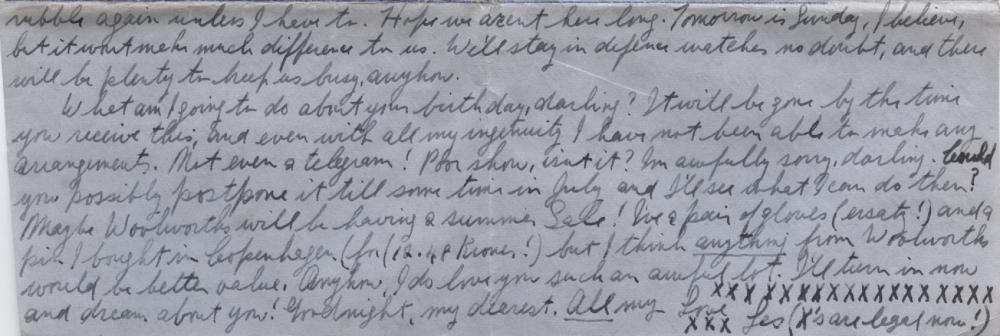 rubble again unless I have to. Hope we arent here long. Tomorrow is Sunday, I believe,
but it wont make much difference to us. We'll stay in defence watches no doubt, and there
will be plenty to keep us busy, anyhow.
What am I going to do about your birthday, darling? It will be gone by the time
you receive this, and even with all my ingenuity I have not been able to make any
arrangements. Not even a telegram! Poor show, isnt it? Im awfully sorry, darling. Could
you possibly postpone it till some time in July and I'll see what I can do then?
Maybe Woolworths will be having a summer Sale! Ive a pair of gloves (ersatz!) and a
pin I bought in Copenhagen (for 12.48 Kroner!) but I think anything from Woolworths
would be better value. Anyhow, I do love you such an awful lot. I'll turn in now
and dream about you! Goodnight, my dearest. All my Love XXXXXXXXXXXXXXXXXX
XXX Yes (X's are legal now!)